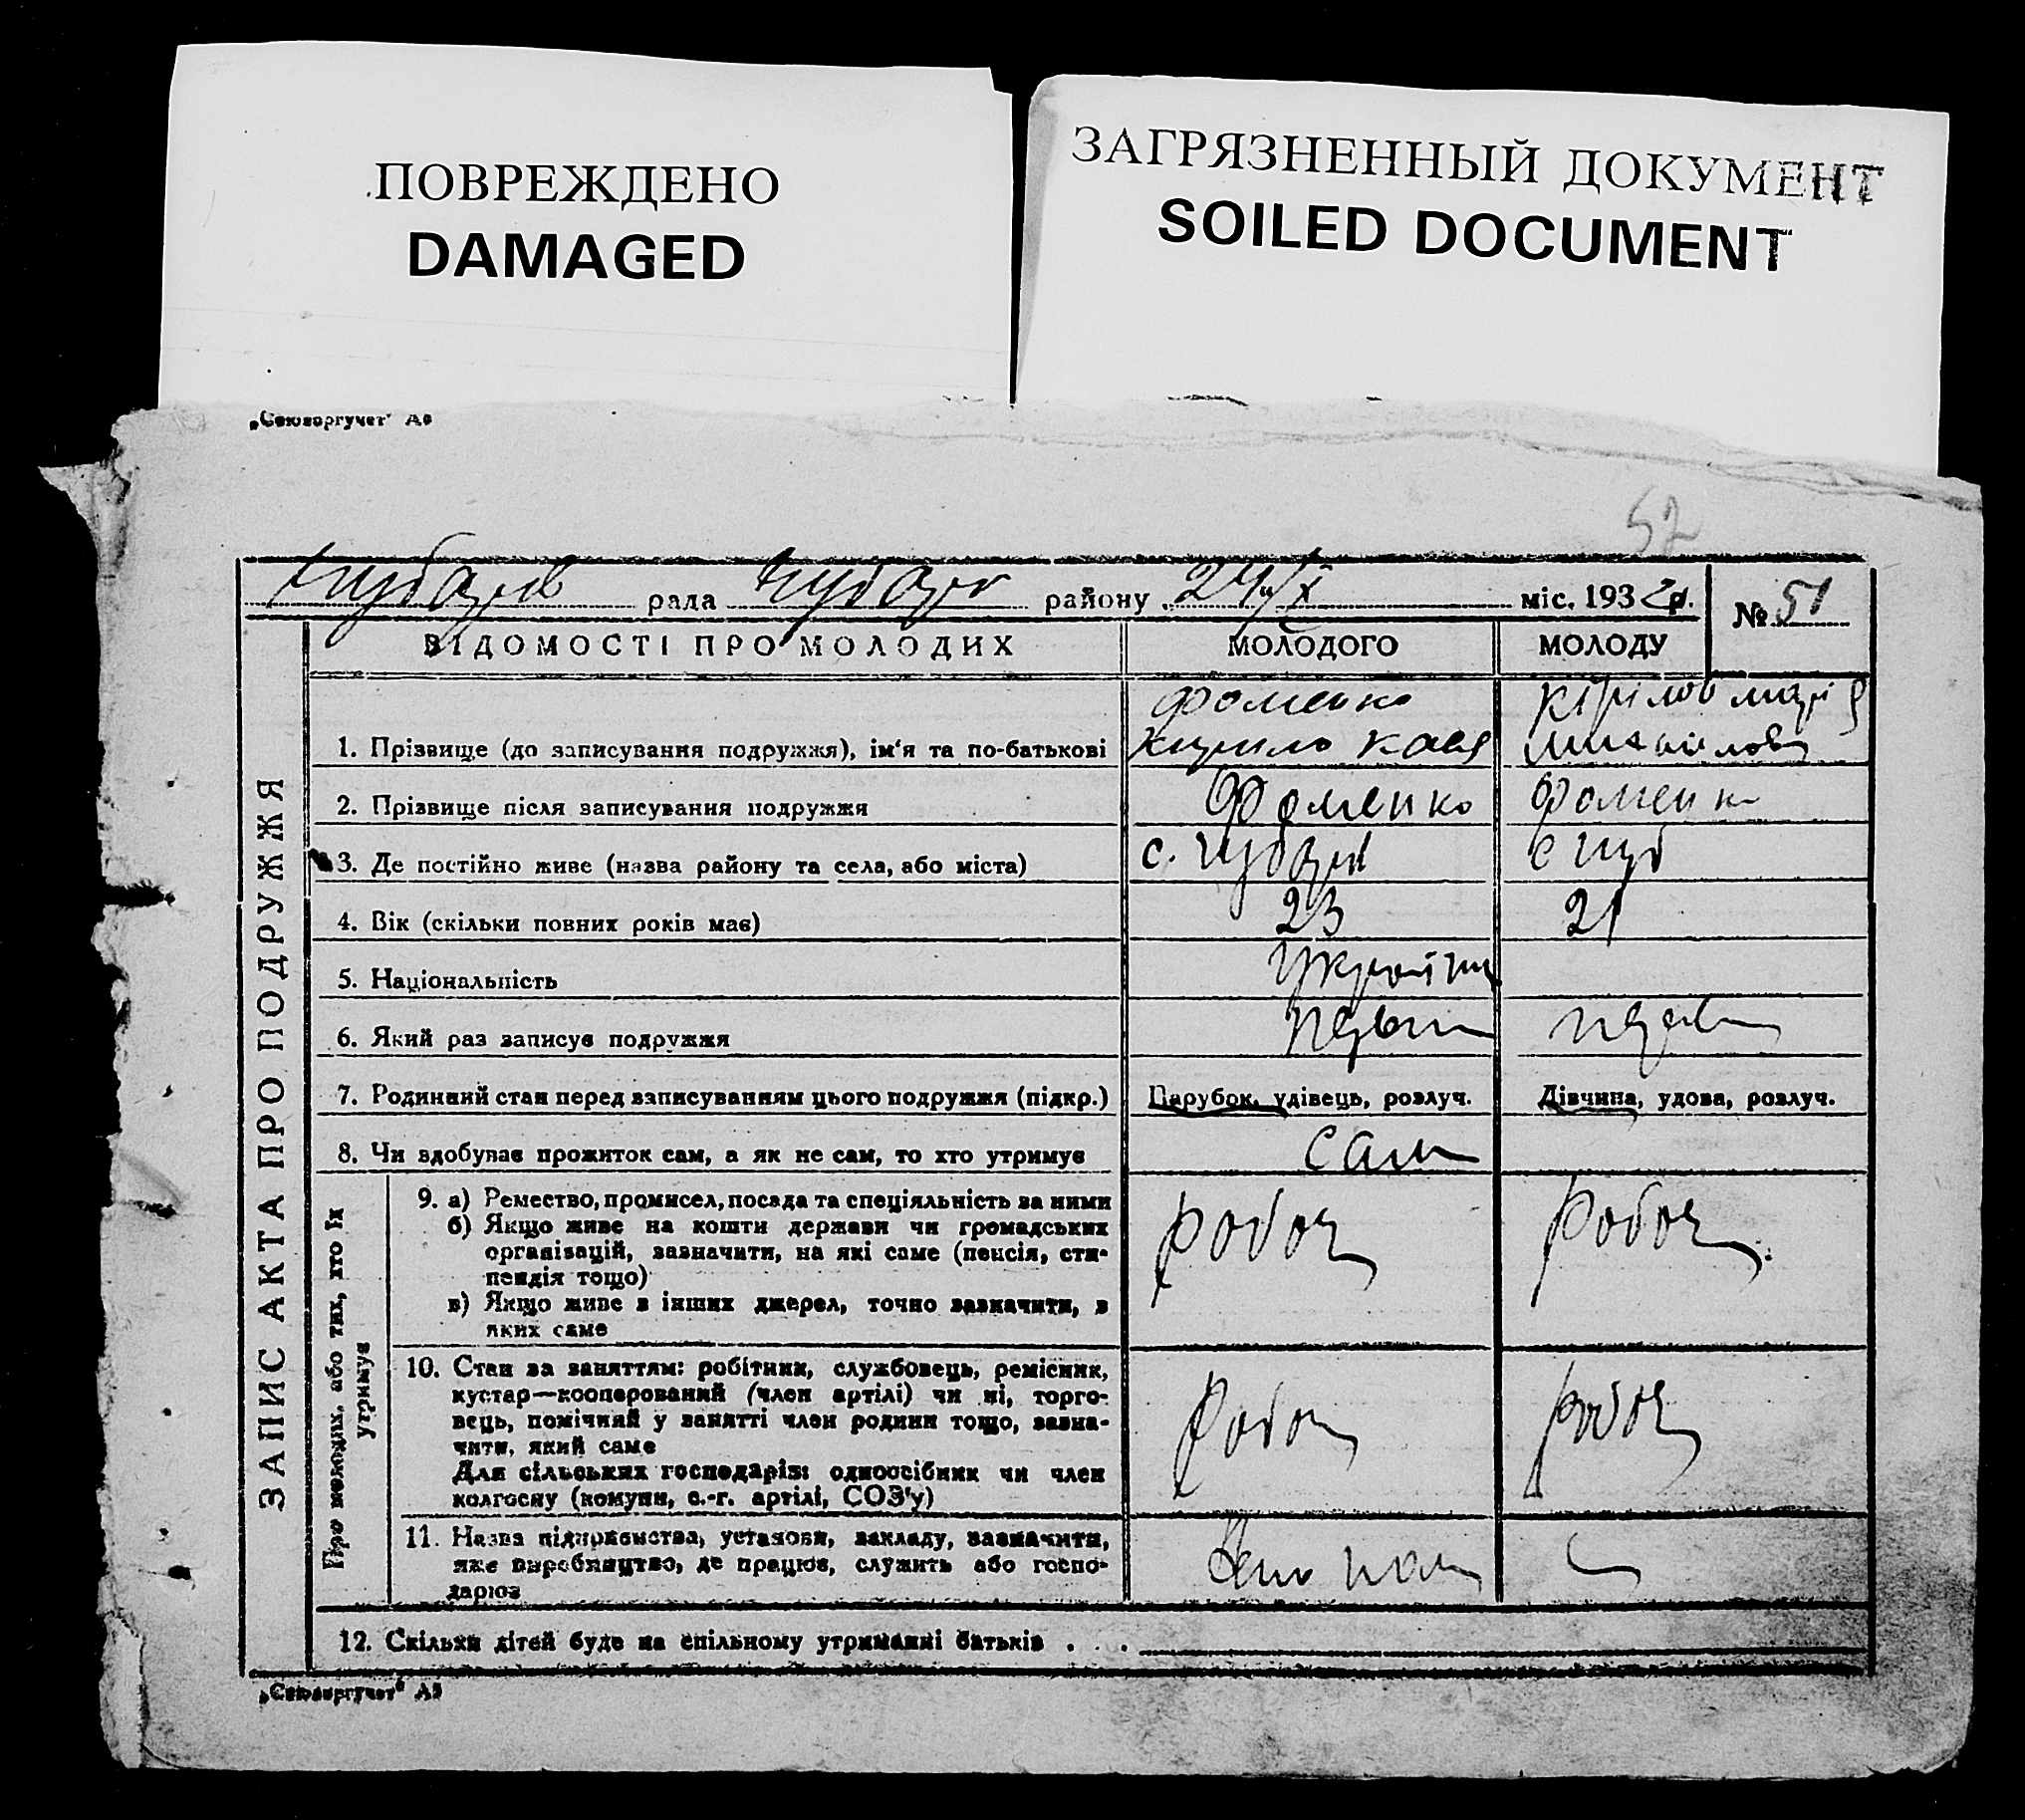 ПОВРЕЖДЕНО
DAMAGED
ЗАГРЯЗНЕННЫЙ ДОКУМЕНТ
SOILED DOCUMENT
„Союзоргучет" А5
52
рада району 24/X міс. 1932 р. № 51
ВІДОМОСТІ ПРО МОЛОДИХ МОЛОДОГО МОЛОДУ
ЗАПИС АКТА ПРО ПОДРУЖЖЯ
Фоменко
1. Прізвище (до записування подружжя), ім'я та по-батькові Кирило
2. Прізвище після записування подружжя Фоменко Фоменко
3. Де постійно живе (назва району та села, або міста) с.
4. Вік (скільки повних років має) 23 21
5. Національність
6. Який раз записує подружжя
7. Родинний стан перед записуванням цього подружжя (підкр.) Парубок, удівець, розлуч. Дівчина, удова, розлуч.
8. Чи здобував прожиток сам, а як не сам, то хто утримує сам
Про молодих, або тих, хто їх утримує
9. а) Ремество, промисел, посада та спеціяльність за ними Робоч Робоч
б) Якщо живе на кошти держави чи громадських
організацій, зазначити, на які саме (пенсія, сти-
пендія тощо)
в) Якщо живе з інших джерел, точно зазначити, з
яких саме
10. Стан за заняттям: робітник, службовець, ремісник,
кустар—кооперований (член артілі) чи ні, торго-
вець, помічний у занятті член родини тощо, зазна-
чити, який саме Робоч Робоч
Для сільських господарів: одноосібник чи член
колгоспу (комуни, с.-г. артілі, СОЗ'у)
11. Назва підприємства, установи, закладу, зазначити,
яке виробництво, де працює, служить або госпо-
дарює
12. Скільки дітей буде на спільному утриманні батьків . . .
„Союзоргучет" А5